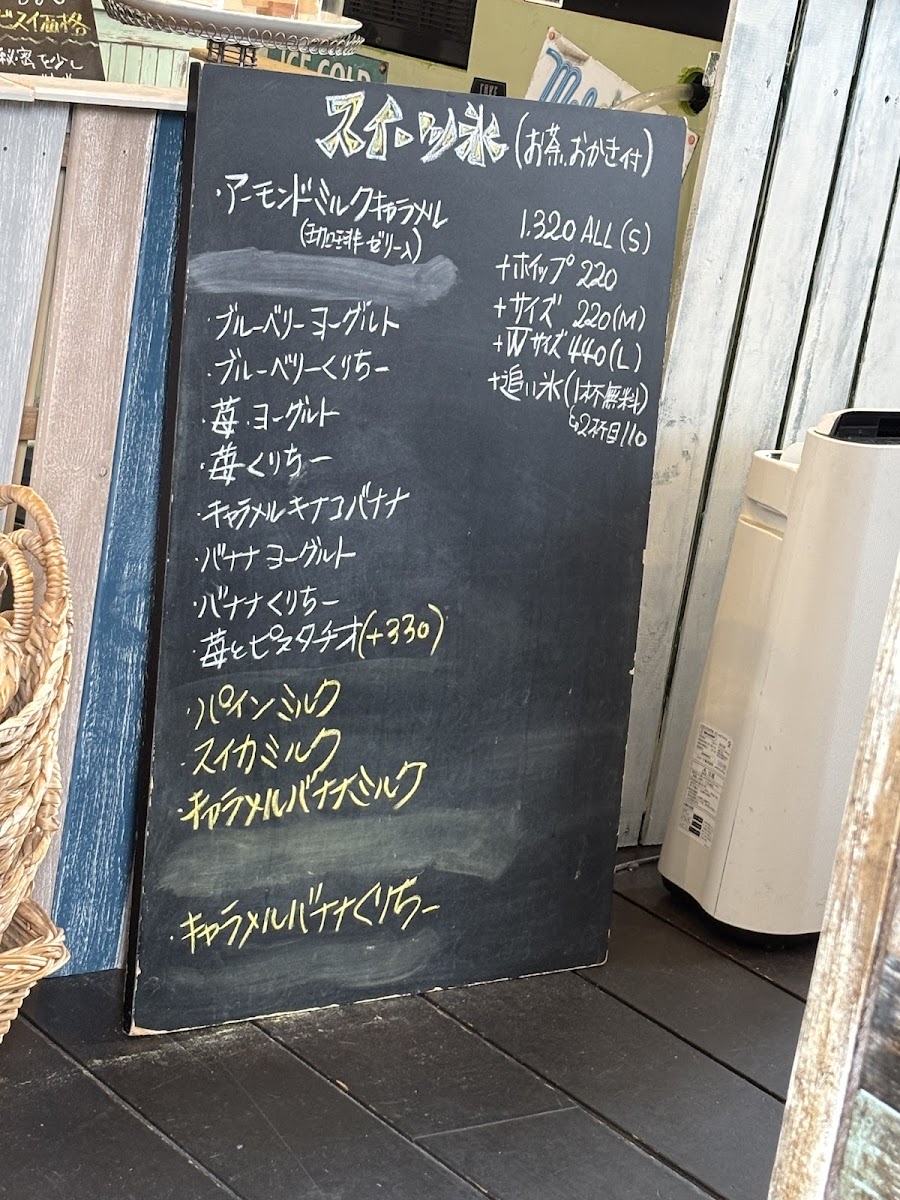 ビスイ価格
秘蜜を少し
ICE COLD
スイーツ氷(お茶、おかき付)
・アーモンドミルクキャラメル
(珈琲ゼリー入)
・ブルーベリーヨーグルト
・ブルーベリーくりちー
・苺・ヨーグルト
・苺くりちー
・キャラメルキナコバナナ
・バナナヨーグルト
・バナナくりちー
・苺とピスタチオ(+330)
・パインミルク
・スイカミルク
・キャラメルバナナミルク
・キャラメルバナナくりちー
1.320 ALL(S)
+ホイップ 220
+サイズ 220(M)
+Wサイズ 440(L)
+追い氷(1杯無料)
↳2杯目110